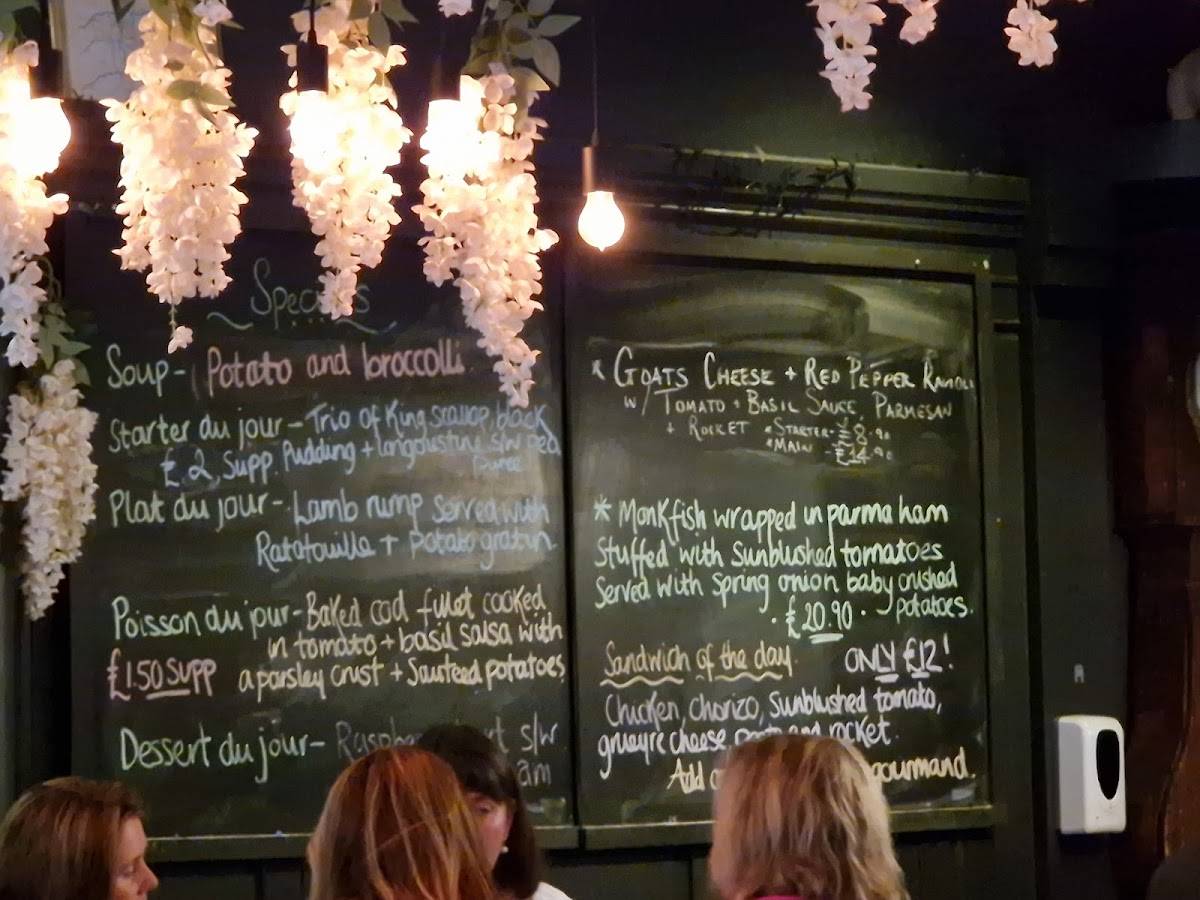 Specials
Soup- Potato and broccolli
Starter du jour - Trio of King scallop, black
£2 Supp. Pudding + langoustine s/w pea
Puree
Plat du jour - Lamb rump served with
Ratatouille + potato gratin.
Poisson du jour - Baked cod fillet cooked
in tomato + basil salsa with
£1.50 Supp a parsley crust + Sauteed potatoes.
Dessert du jour - s/w
* Goats Cheese + Red Pepper Ravioli
w/ Tomato + Basil Sauce, Parmesan
+ Rocket *Starter - £8.90
*Main - £14.90
* Monkfish wrapped in parma ham
Stuffed with Sunblushed tomatoes
Served with spring onion baby crushed
£20.90. potatoes.
Sandwich of the day. ONLY £12!
Chicken, chorizo, Sunblushed tomato,
grueyre cheese rocket.
Add gourmand.